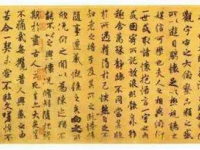 觀宇宙之大俯察品類之盛
所以遊目騁懷足以極視聽之
娛信可樂也夫人之相與俯仰
一世或取諸懷抱悟言一室之內
或因寄所託放浪形骸之外雖
趣舍萬殊靜躁不同當其欣
於所遇蹔得於己怏然自足不
知老之將至及其所之既惓情
隨事遷感慨係之矣向之所
欣俛仰之間以為陳迹猶不
能不以之興懷況脩短隨化終
期於盡古人云死生亦大矣豈
不痛哉每攬昔人興感之由
若合一契未嘗不臨文嗟悼不